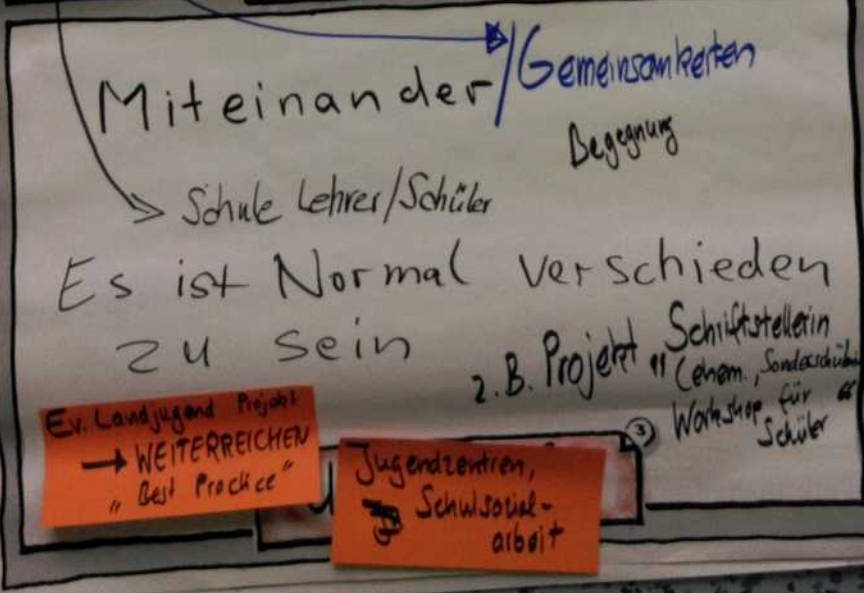 Miteinander/Gemeinsamkeiten
Begegnung
Schule Lehrer/Schüler
Es ist Normal verschieden
zu sein
z.B. Projekt "Schriftstellerin
(ehem., Sonderschülerin
Workshop für "
Schüler
Ev. Landjugend Projekt
→ WEITERREICHEN
"Best Practice"
Jugendzentren,
Schulsozial-
arbeit
3